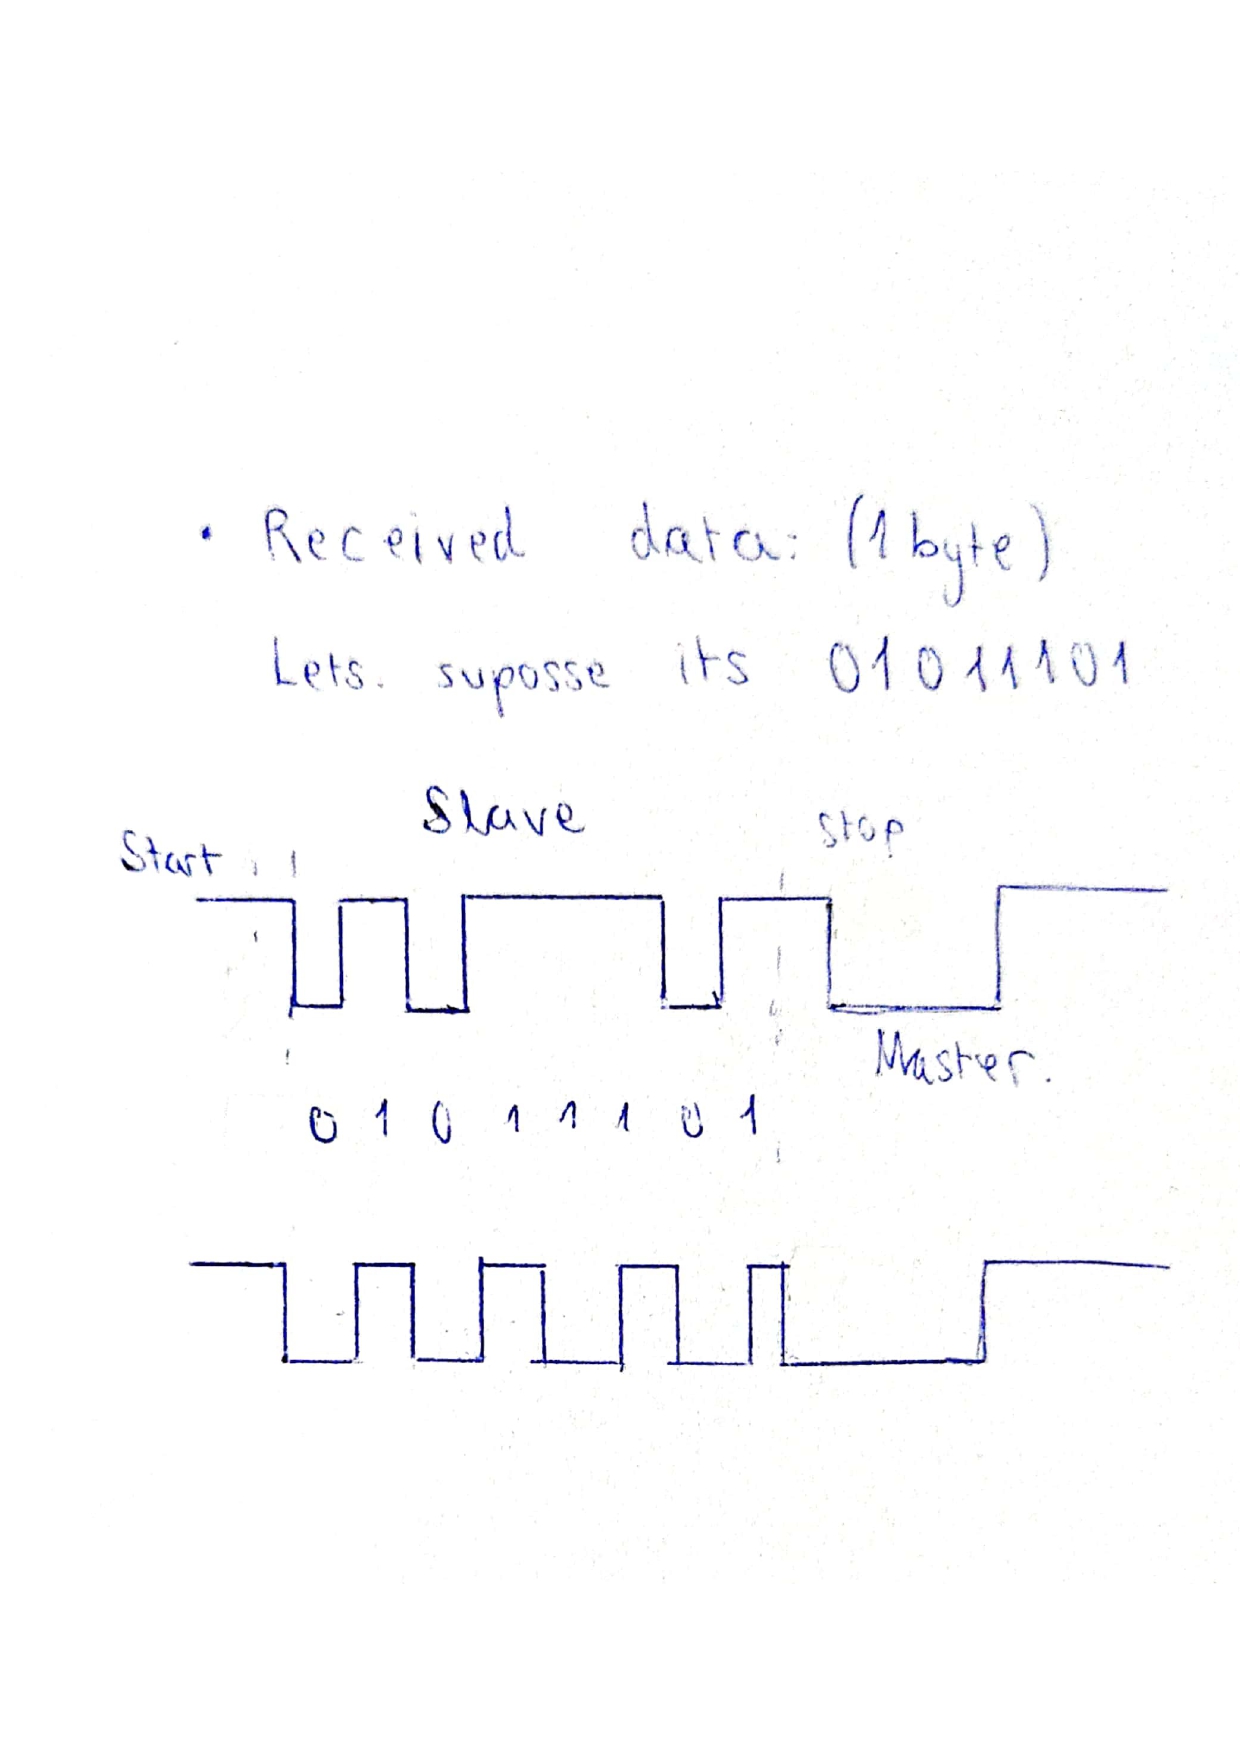 • Received data: (1 byte)
Lets. suposse its 01011101
Slave
Start
stop
Master.
0 1 0 1 1 1 0 1